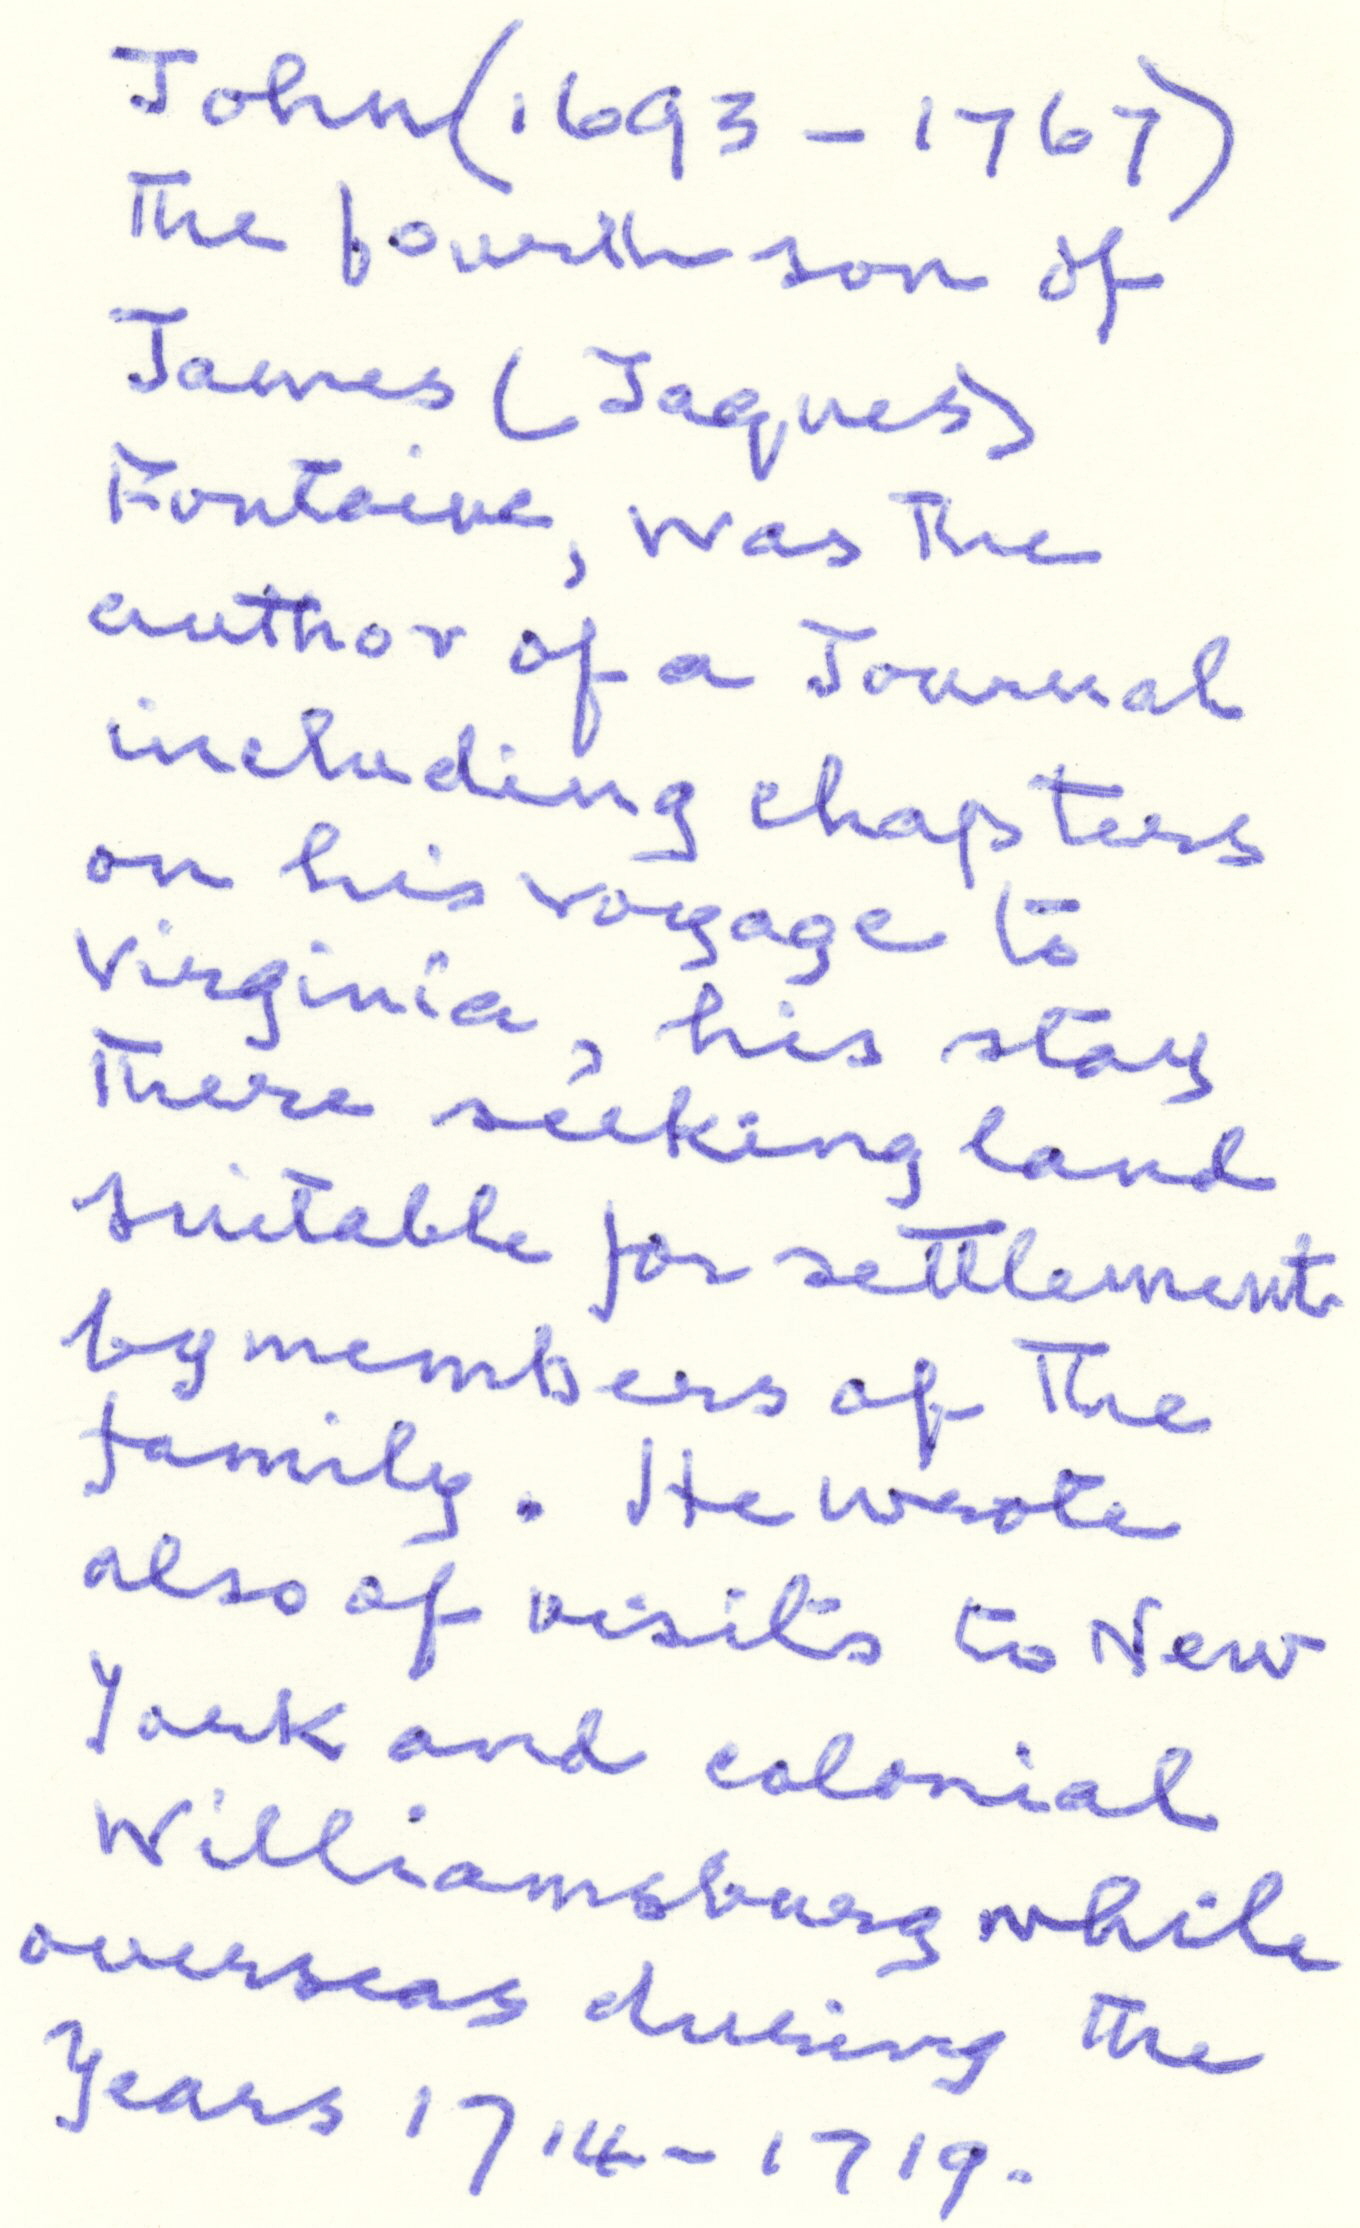 John (1693 - 1767)
The fourth son of
James (Jaques)
Fontaine, was the
author of a Journal
including chapters
on his voyage to
Virginia, his stay
there seeking land
suitable for settlement
by members of the
family. He wrote
also of visits to New
York and colonial
Williamsburg while
overseas during the
Years 1714 - 1719.